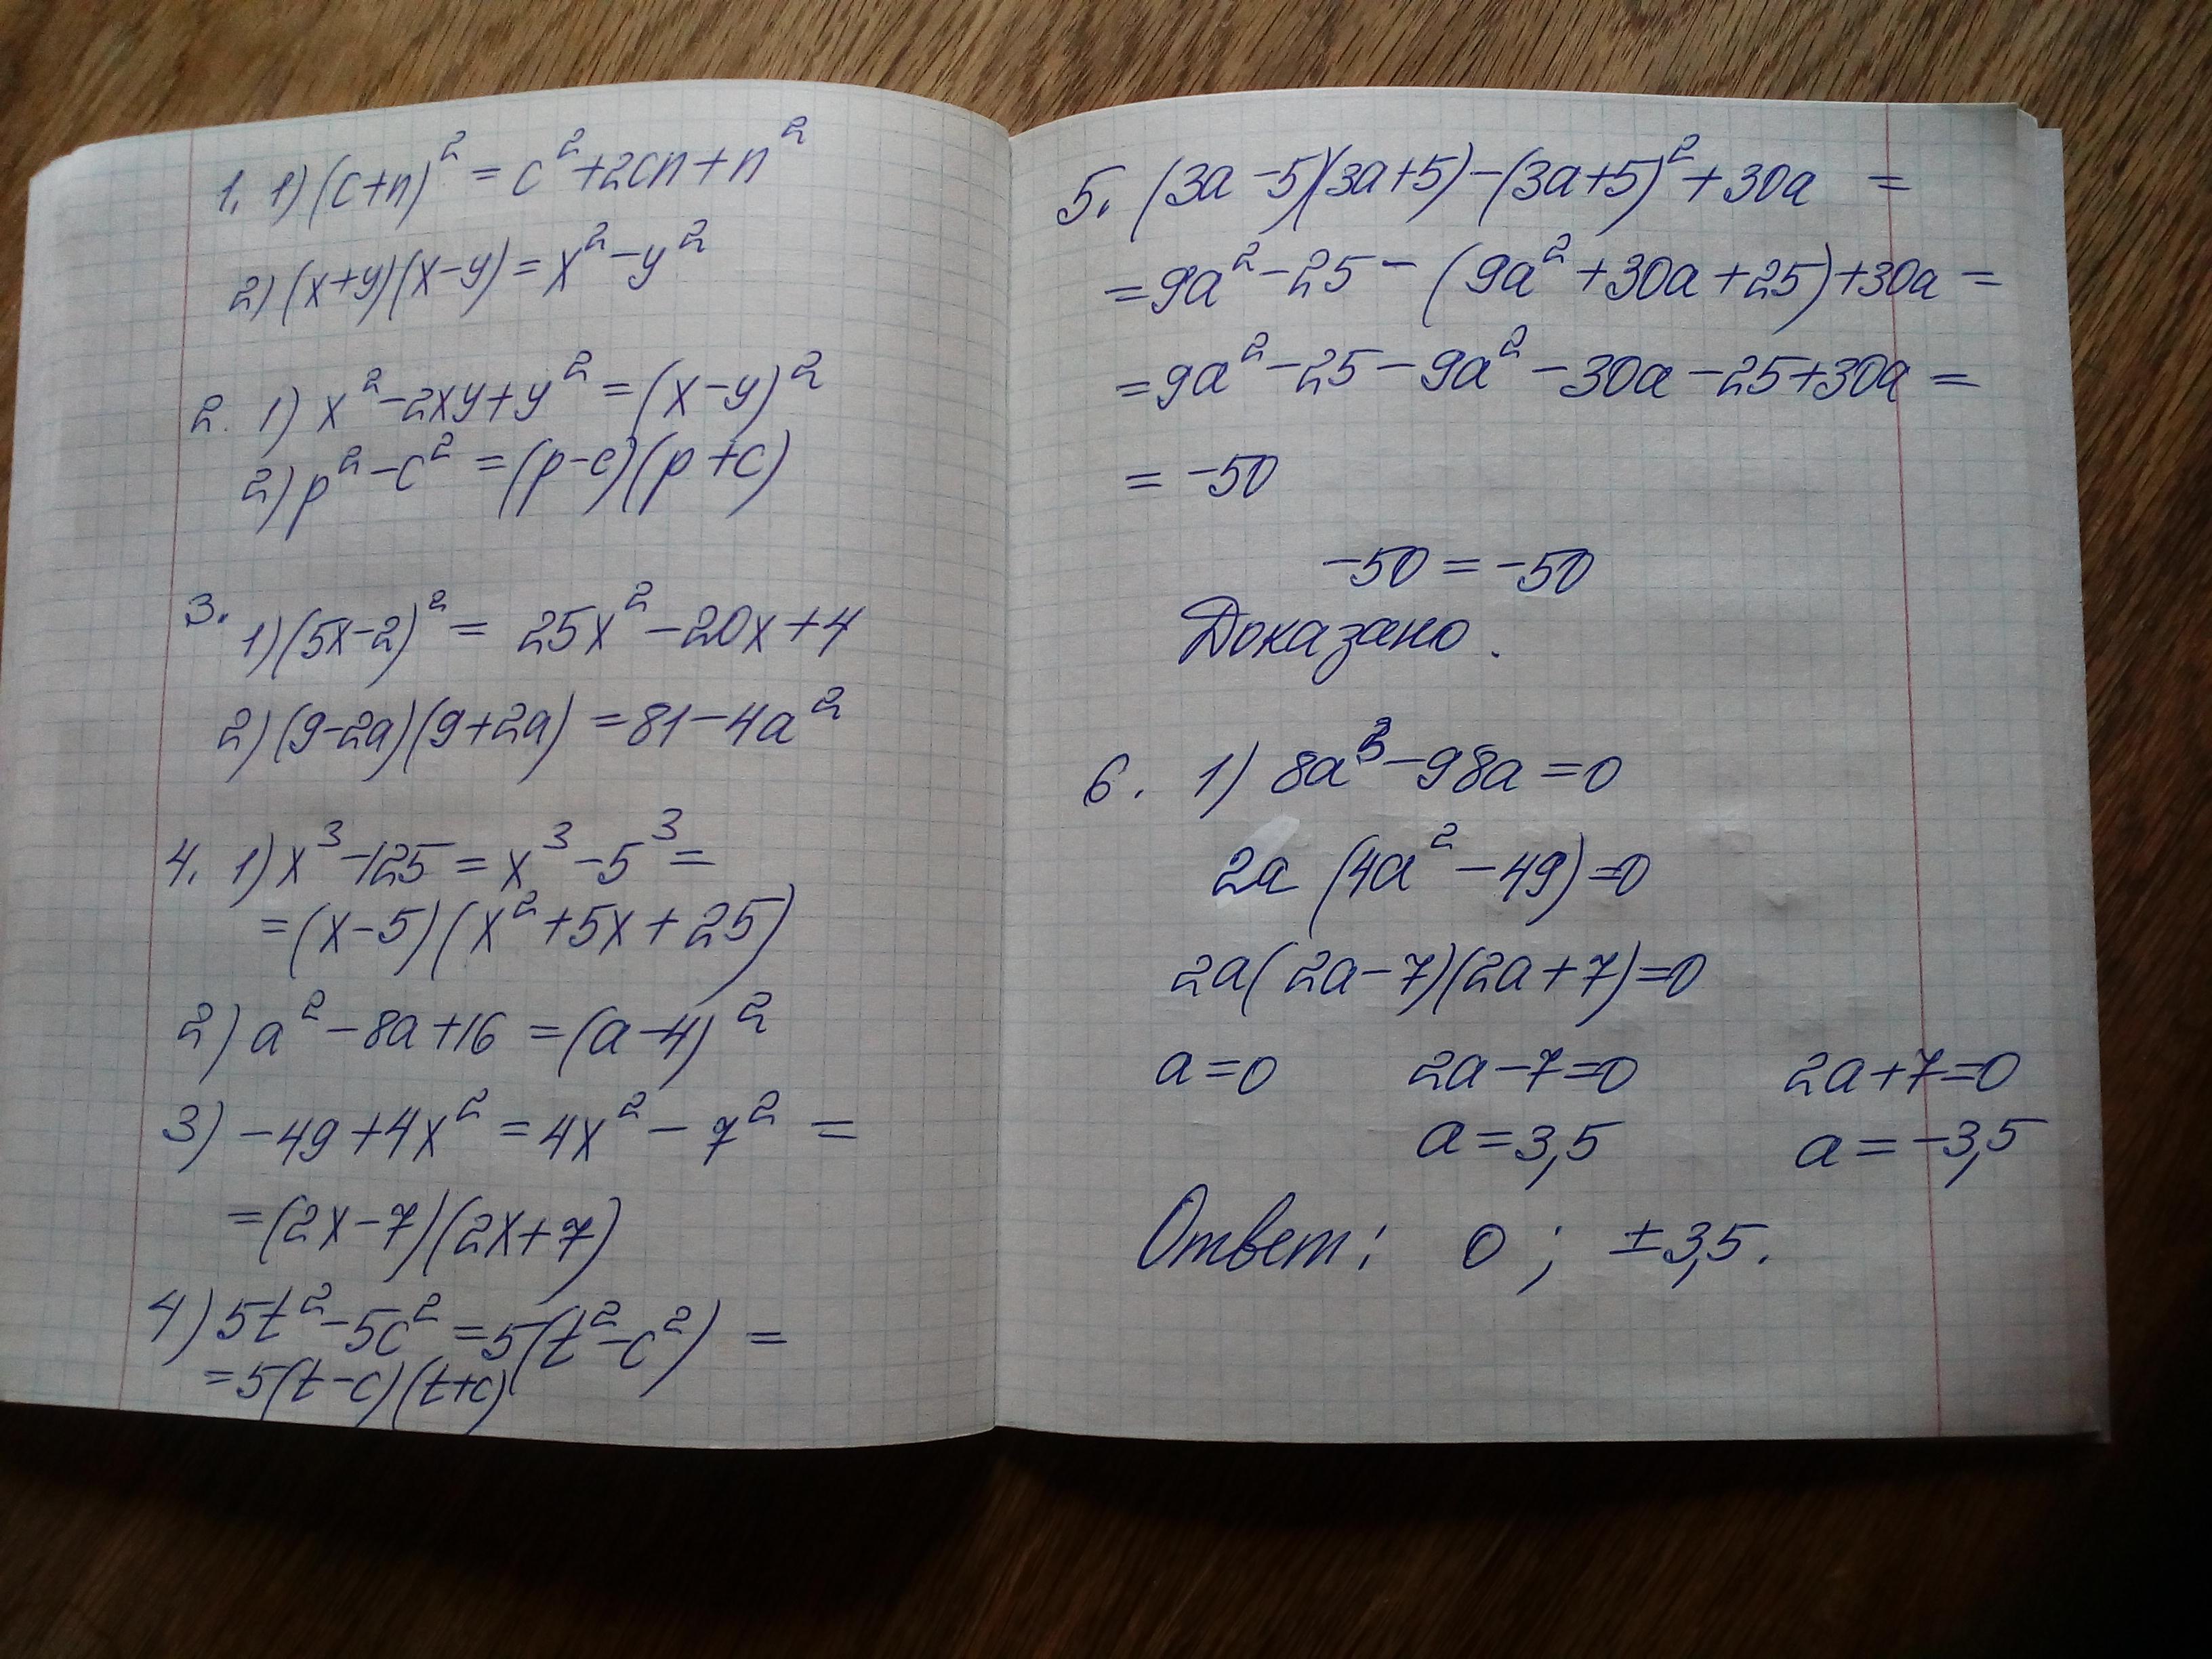 1. 1) (c+n)² = c²+2cn+n²
2) (x+y)(x-y) = x²-y²
2. 1) x²-2xy+y² = (x-y)²
2) p²-c² = (p-c)(p+c)
3.
1) (5x-2)² = 25x²-20x+4
2) (9-2a)(9+2a) = 81-4a²
4. 1) x³-125 = x³-5³ =
= (x-5)(x²+5x+25)
2) a²-8a+16 = (a-4)²
3) -49+4x² = 4x²-7² =
= (2x-7)(2x+7)
4) 5t²-5c² = 5(t²-c²) =
= 5(t-c)(t+c)
5. (3a-5)(3a+5)-(3a+5)²+30a =
= 9a²-25-(9a²+30a+25)+30a =
= 9a²-25-9a²-30a-25+30a =
= -50
-50 = -50
Доказано.
6. 1) 8a³-98a=0
2a(4a²-49)=0
2a(2a-7)(2a+7)=0
a=0 2a-7=0 2a+7=0
a=3,5 a=-3,5
Ответ: 0; ±3,5.